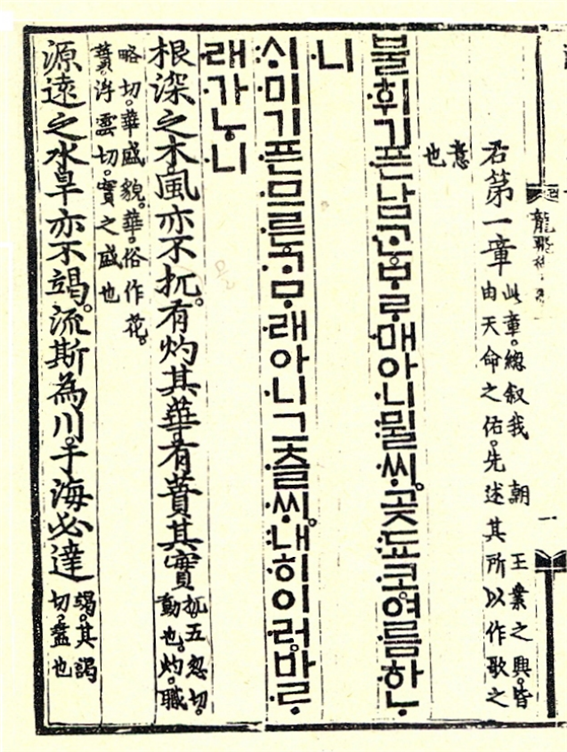 龍飛
一
右第一章
此章。總叙我 朝 王業之興。皆
由天命之佑。先述其所以作歌之
意
也
불휘기픈남ᄀᆞᆫᄇᆞᄅᆞ매아니뮐ᄊᆡ。곶됴코。여름하ᄂᆞ
니
ᄉᆡ미기픈므른ᄀᆞᄆᆞ래아니그츨ᄊᆡ。내히이러。바ᄅᆞ
래가ᄂᆞ니
根深之木風亦不扤。有灼其華。有蕡其實
扤。五忽切。
動也。灼。職
略切。華盛貌。華。俗作花。
蕡。浮雲切。實之盛也
源遠之水旱亦不竭。流斯為川。于海必達
竭。其謁
切。盡也